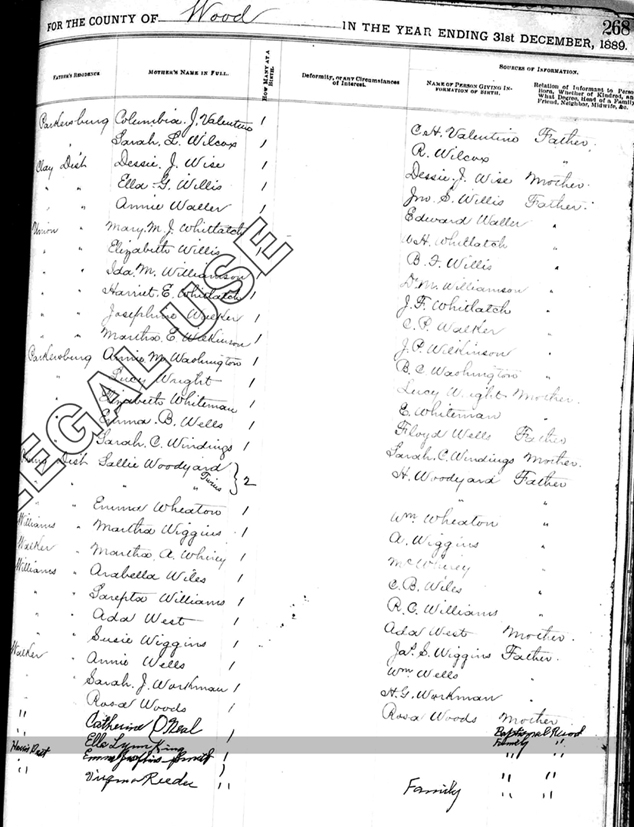 FOR THE COUNTY OF Wood IN THE YEAR ENDING 31ST DECEMBER, 1889. 268
SOURCES OF INFORMATION.
FATHER'S RESIDENCE MOTHER'S NAME IN FULL. HOW MANY AT A BIRTH. Deformity, or any Circumstances of Interest. NAME OF PERSON GIVING INFORMATION OF BIRTH. Relation of Informant to Person Born, Whether of Kindred, and What Degree, Head of a Family, Friend, Neighbor, Midwife, &c.
Parkersburg Columbia J. Valentine 1 C.H. Valentine Father
" " Sarah L. Wilcox 1 R. Wilcox "
Clay Dist Dessie J. Wise 1 Dessie J. Wise Mother
" " Ella G. Willis 1 Jno. S. Willis Father
" " Annie Waller 1 Edward Waller "
Union " Mary M. J. Whitlatch 1 W.H. Whitlatch "
" Elizabeth Willis 1 B. F. Willis "
Ida M. Williamson 1 M. Williamson "
Harriet E. Whitlatch 1 J. F. Whitlatch "
Josephine Walker 1 C. P. Walker "
Martha E. Wilkinson 1 J. P. Wilkinson "
Parkersburg Annie M. Washington 1 B. C. Washington "
" Lucy Wright 1 Lucy Wright Mother
Elizabeth Whiteman 1 E. Whiteman "
Emma B. Wells 1 Floyd Wells Father
Sarah C. Windings 1 Sarah C. Windings Mother
Dist Sallie Woodyard 2 H. Woodyard Father
" " " Twins "
" " Emma Wheaton 1 Wm Wheaton "
Williams " Martha Wiggins 1 A. Wiggins "
Walker " Martha A. 1 "
Williams " Arabella Wiles 1 C. B. Wiles "
" " Sarepta Williams 1 R. C. Williams "
" " Ada West 1 Ada West Mother
" " Susie Wiggins 1 Jas. S. Wiggins Father
Walker " Annie Wells 1 Wm Wells "
" " Sarah J. Workman 1 H. G. Workman "
" " Rosa Woods 1 Rosa Woods Mother
" Catherine O'Neal 1 Baptismal Record
" Ella Lynn King 1 Family "
Harris Dist Emma Smith " "
" Virginia Reeder " Family " "
LEGAL USE